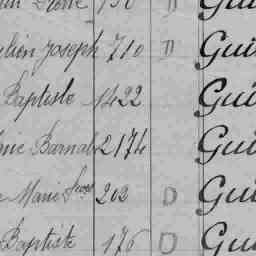 Pierre 150 D Gui
Julien Joseph 710 D Gui
Baptiste 1422 Gui
Barnabé 2174 Gui
Marie 202 D Gui
Baptiste 176 D Gui